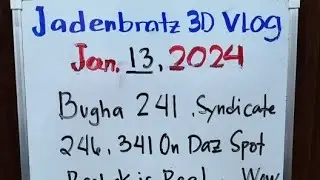 Jadenbratz 3D Vlog
Jan. 13, 2024
Bugha 241 . Syndicate
246, 341 On Daz Spot